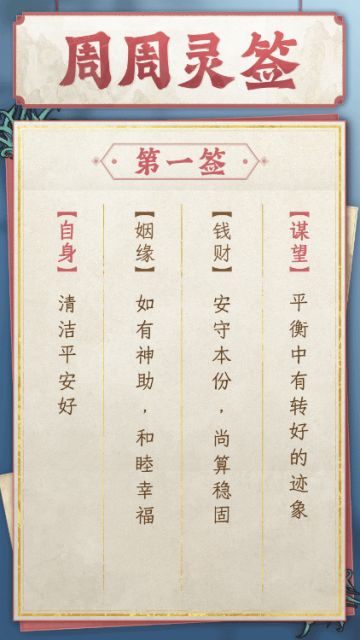 周周灵签
第一签
【谋望】
平衡中有转好的迹象
【钱财】
安守本份，尚算稳固
【姻缘】
如有神助，和睦幸福
【自身】
清洁平安好